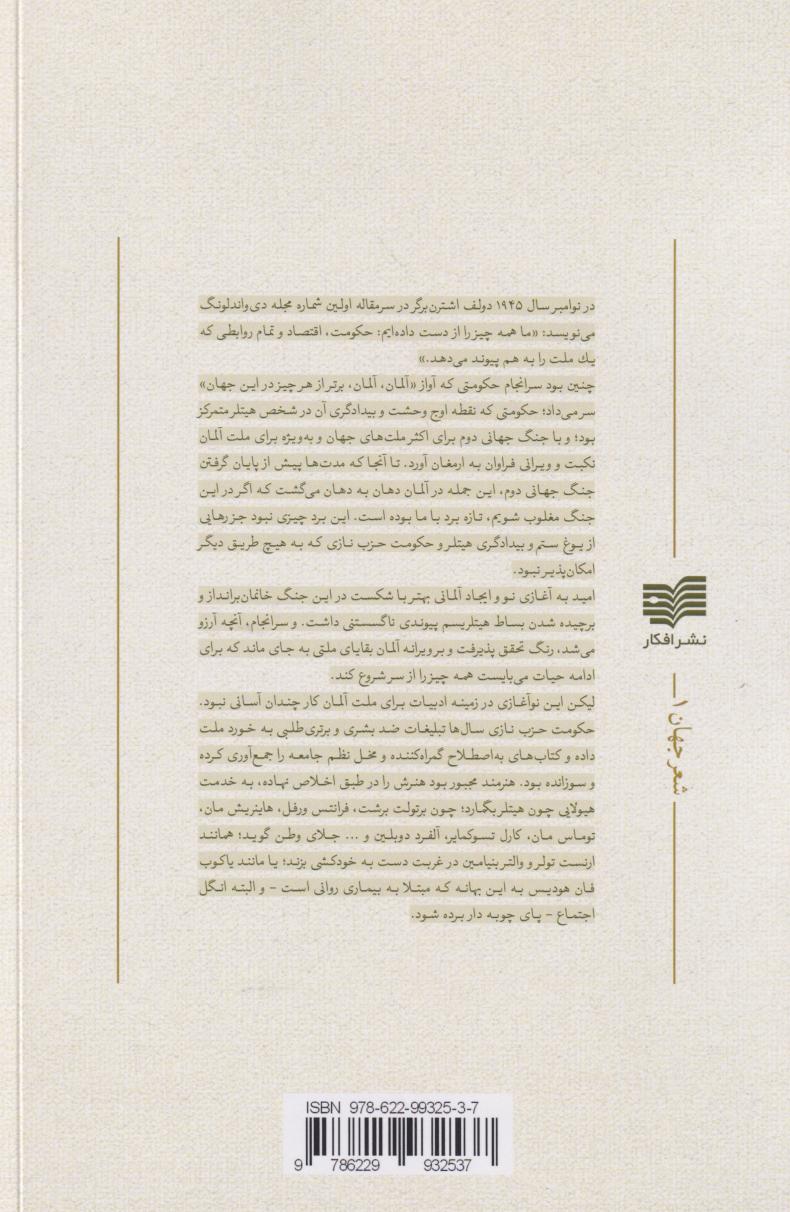 در نوامبر سال ۱۹۴۵ دولف اشترن‌برگر در سرمقاله اولین شماره مجله دی‌واندلونگ
می‌نویسد: «ما همه چیز را از دست داده‌ایم: حکومت، اقتصاد و تمام روابطی که
یك ملت را به هم پیوند می‌دهد.»
چنین بود سرانجام حکومتی که آواز «آلمان، آلمان، برتر از هر چیز در این جهان»
سر می‌داد؛ حکومتی که نقطه اوج وحشت و بیدادگری آن در شخص هیتلر متمرکز
بود؛ و با جنگ جهانی دوم برای اکثر ملت‌های جهان و به‌ویژه برای ملت آلمان
نکبت و ویرانی فراوان به ارمغان آورد. تا آنجا که مدت‌ها پیش از پایان گرفتن
جنگ جهانی دوم، این جمله در آلمان دهان به دهان می‌گشت که اگر در این
جنگ مغلوب شویم، تازه برد با ما بوده است. این برد چیزی نبود جز رهایی
از یوغ ستم و بیدادگری هیتلر و حکومت حزب نازی که به هیچ طریق دیگر
امکان‌پذیر نبود.
امید به آغازی نو و ایجاد آلمانی بهتر با شکست در این جنگ خانمان‌برانداز و
برچیده شدن بساط هیتلریسم پیوندی ناگسستنی داشت. و سرانجام، آنچه آرزو
می‌شد، رنگ تحقق پذیرفت و بر ویرانه آلمان بقایای ملتی به جای ماند که برای
ادامه حیات می‌بایست همه چیز را از سر شروع کند.
لیکن این نوآغازی در زمینه ادبیات برای ملت آلمان کار چندان آسانی نبود.
حکومت حزب نازی سال‌ها تبلیغات ضد بشری و برتری‌طلبی به خورد ملت
داده و کتاب‌های به‌اصطلاح گمراه‌کننده و مخل نظم جامعه را جمع‌آوری کرده
و سوزانده بود. هنرمند مجبور بود هنرش را در طبق اخلاص نهاده، به خدمت
هیولایی چون هیتلر بگمارد؛ چون برتولت برشت، فرانتس ورفل، هاینریش مان،
توماس مان، کارل تسوکمایر، آلفرد دوبلین و ... جلای وطن گوید؛ همانند
ارنست تولر و والتر بنیامین در غربت دست به خودکشی بزند؛ یا مانند یاکوب
فان هودیس به این بهانه که مبتلا به بیماری روانی است - و البته انگل
اجتماع - پای چوبه دار برده شود.
نشر افکار
شعر جهان ۱
ISBN 978-622-99325-3-7
9 786229 932537